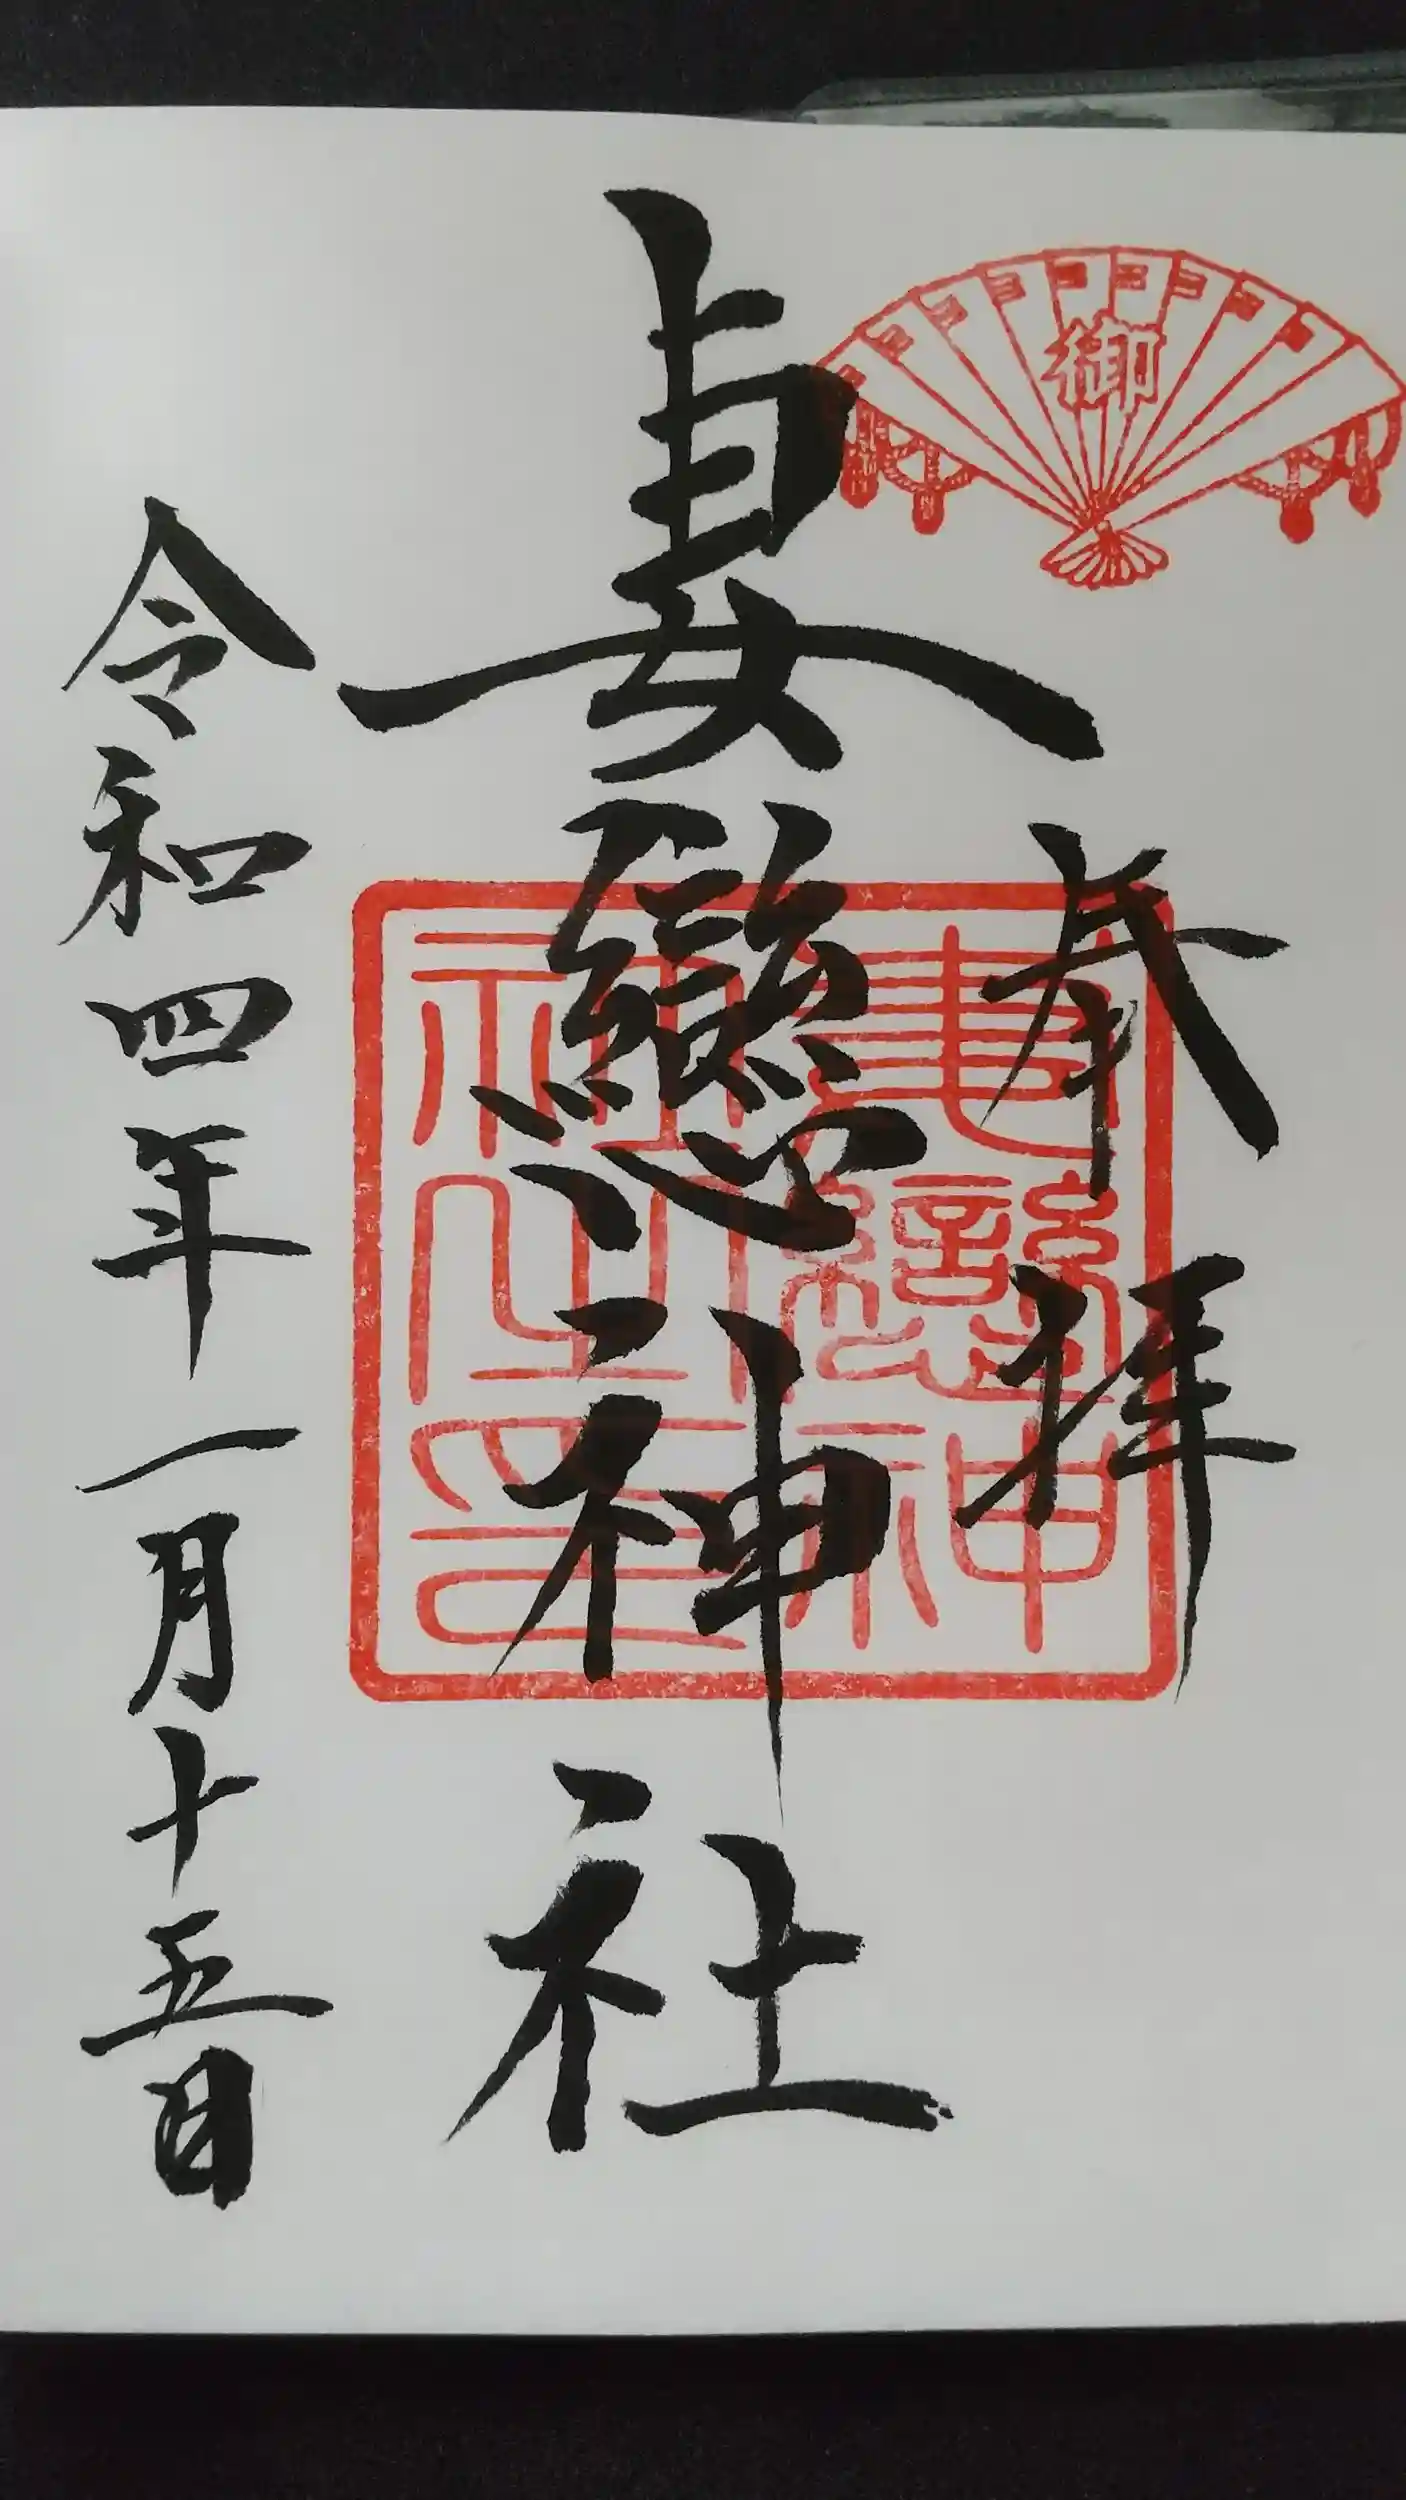 御
奉拝
妻戀神社
妻戀神
社之印
令和四年一月十五日